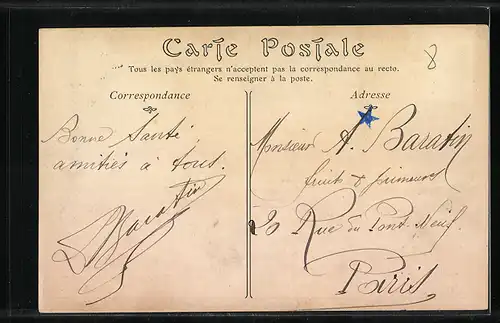 Carte Postale
8
Tous les pays étrangers n'acceptent pas la correspondance au recto.
Se renseigner à la poste.
Correspondance
Adresse
Bonne Santé
amitiés à tous.
Baratin
Monsieur A. Baratin
fruits & primeurs
20 Rue du Pont-Neuf.
Paris